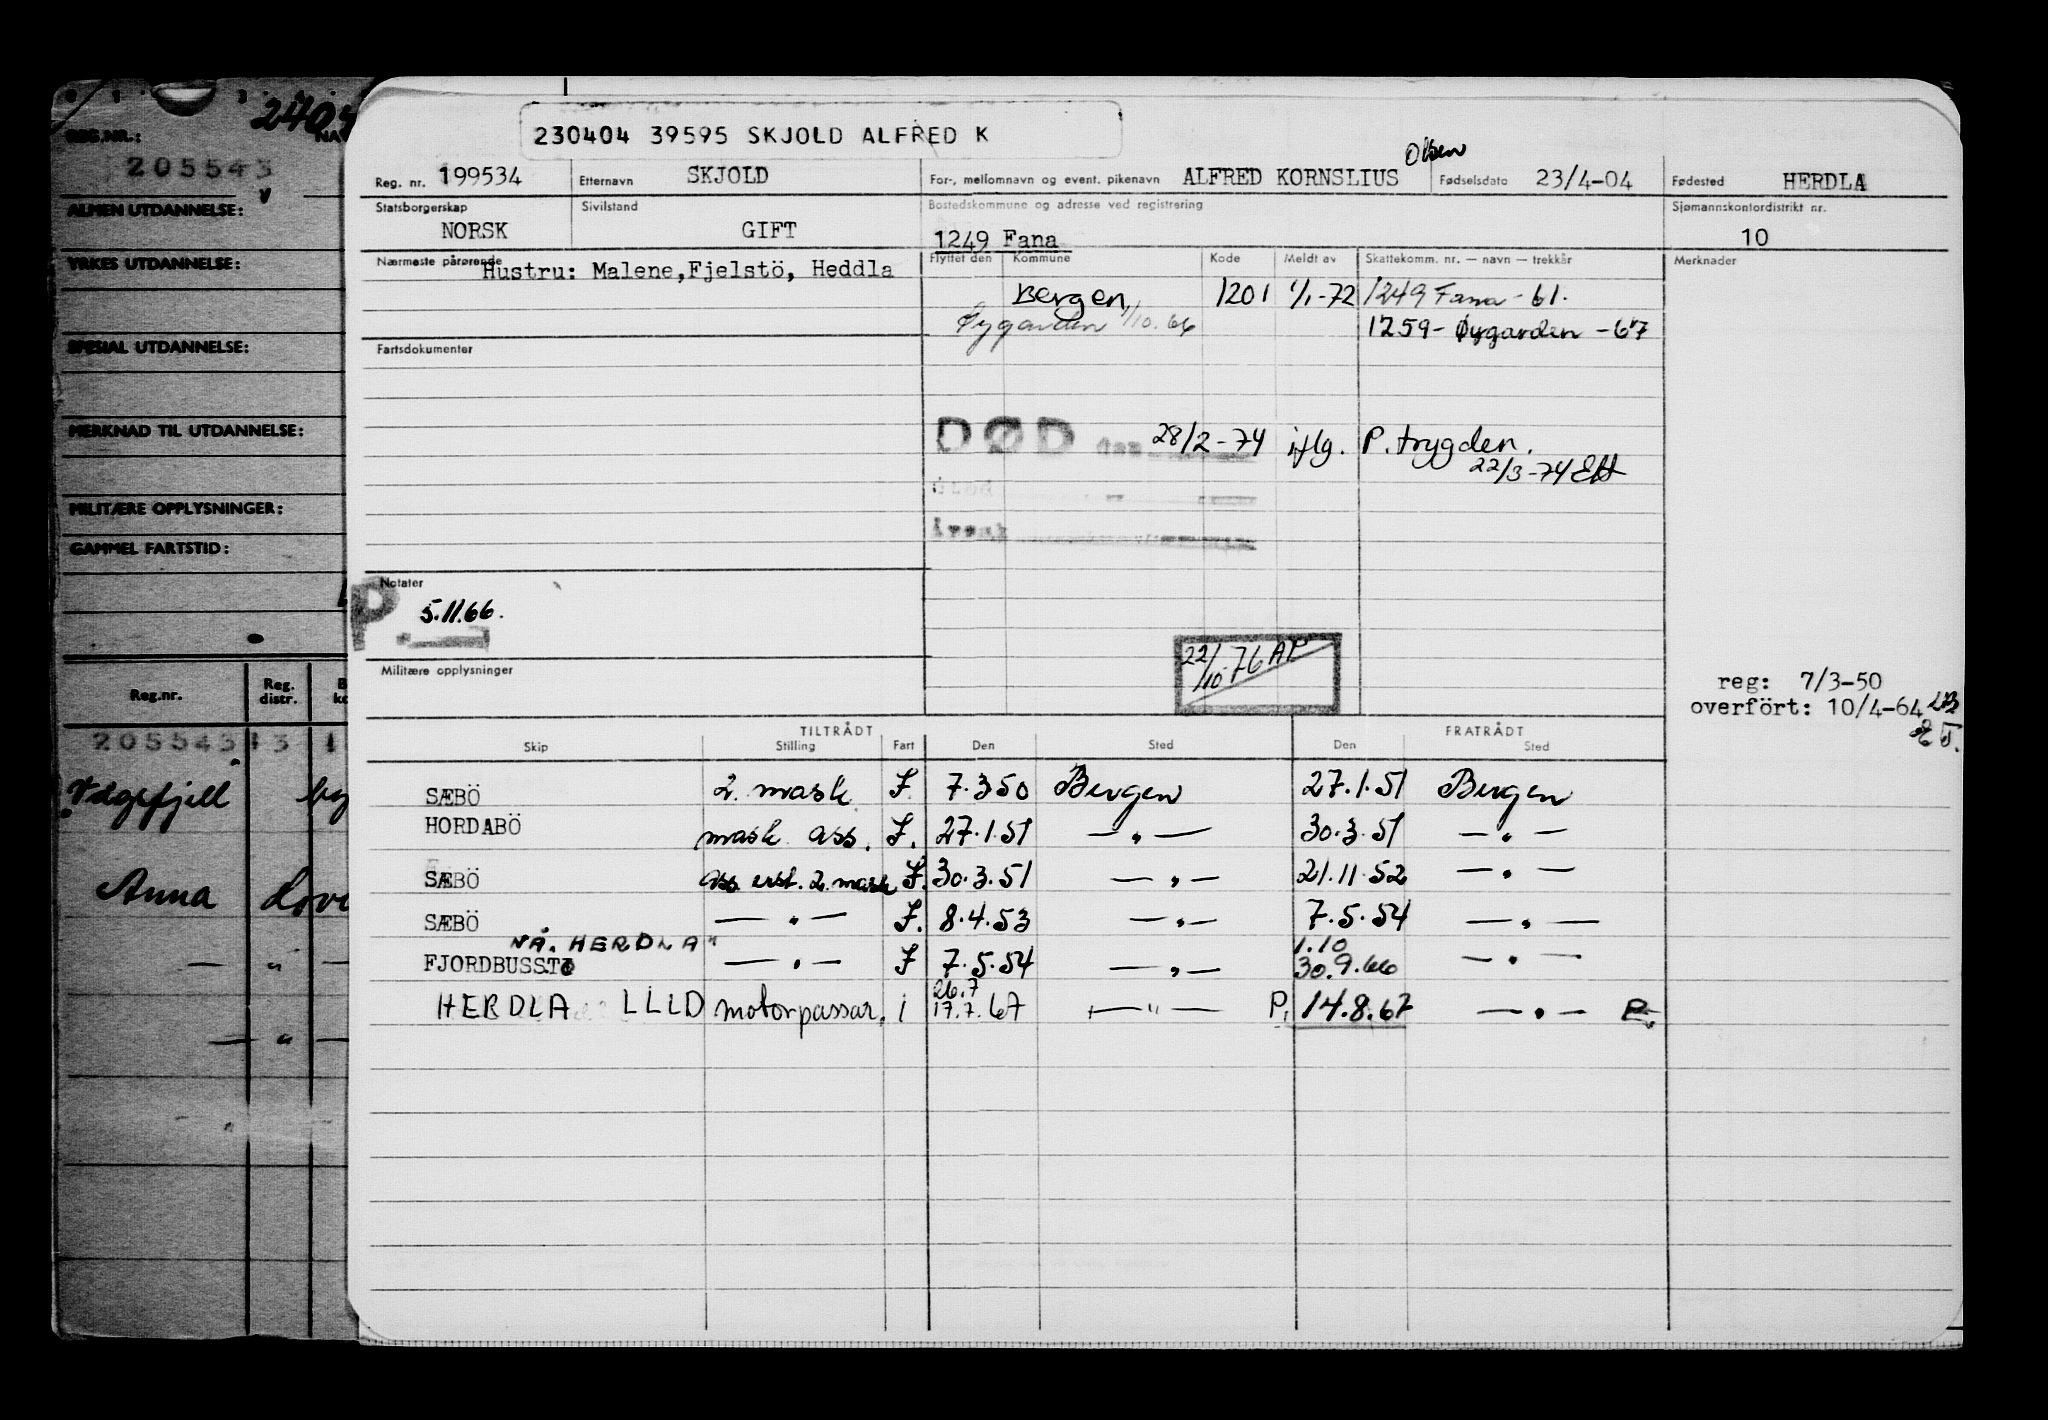 2404
REG.NR.: NA
205543
ALMEN UTDANNELSE:
YRKES UTDANNELSE:
SPESIAL UTDANNELSE:
MERKNAD TIL UTDANNELSE:
MILITÆRE OPPLYSNINGER:
GAMMEL FARTSTID:
Reg.nr. Reg. distr.
205543 13 1
Anna
230404 39595 SKJOLD ALFRED K
Reg. nr. 199534 Etternavn SKJOLD For-, mellomnavn og event. pikenavn ALFRED KORNSLIUS Olsen Fødselsdato 23/4-04 Fødested HERDLA
Statsborgerskap Sivilstand Bostedskommune og adresse ved registrering Sjømannskontordistrikt nr.
NORSK GIFT 1249 Fana 10
Nærmeste pårørende Hustru: Malene,Fjelstö, Heddla Flyttet den Kommune Kode Meldt av Skattekomm. nr. — navn — trekkår Merknader
Bergen, 1201 1/1-72 1249 Fana - 61.
Øygarden 1/10.66 1259- Øygarden -67
Fartsdokumenter
DØD den 28/2-74 iflg. P. trygden.
22/3-74
Notater
P. 5.11.66.
22/10 76 AP
Militære opplysninger
reg: 7/3-50
overfört: 10/4-64
TILTRÅDT FRATRÅDT
Skip Stilling Fart Den Sted Den Sted
SÆBÖ 2. mask F. 7.3 50 Bergen 27.1.51 Bergen
HORDABÖ mask. ass. F. 27.1.51 — " — 30.3.51 — " —
SÆBÖ ass erst. 2. mask F. 30.3.51 — " — 21.11.52 — " —
SÆBÖ — " — F. 8.4.53 — " — 7.5.54 — " —
NÅ. HERDLA" 1.10
FJORDBUSSTO — " — F 7.5.54 — " — 30.9.66 — " —
26.7
HERDLA LLLD motorpassar. i 17.7.67 — " — P. 14.8.67 — " — P.